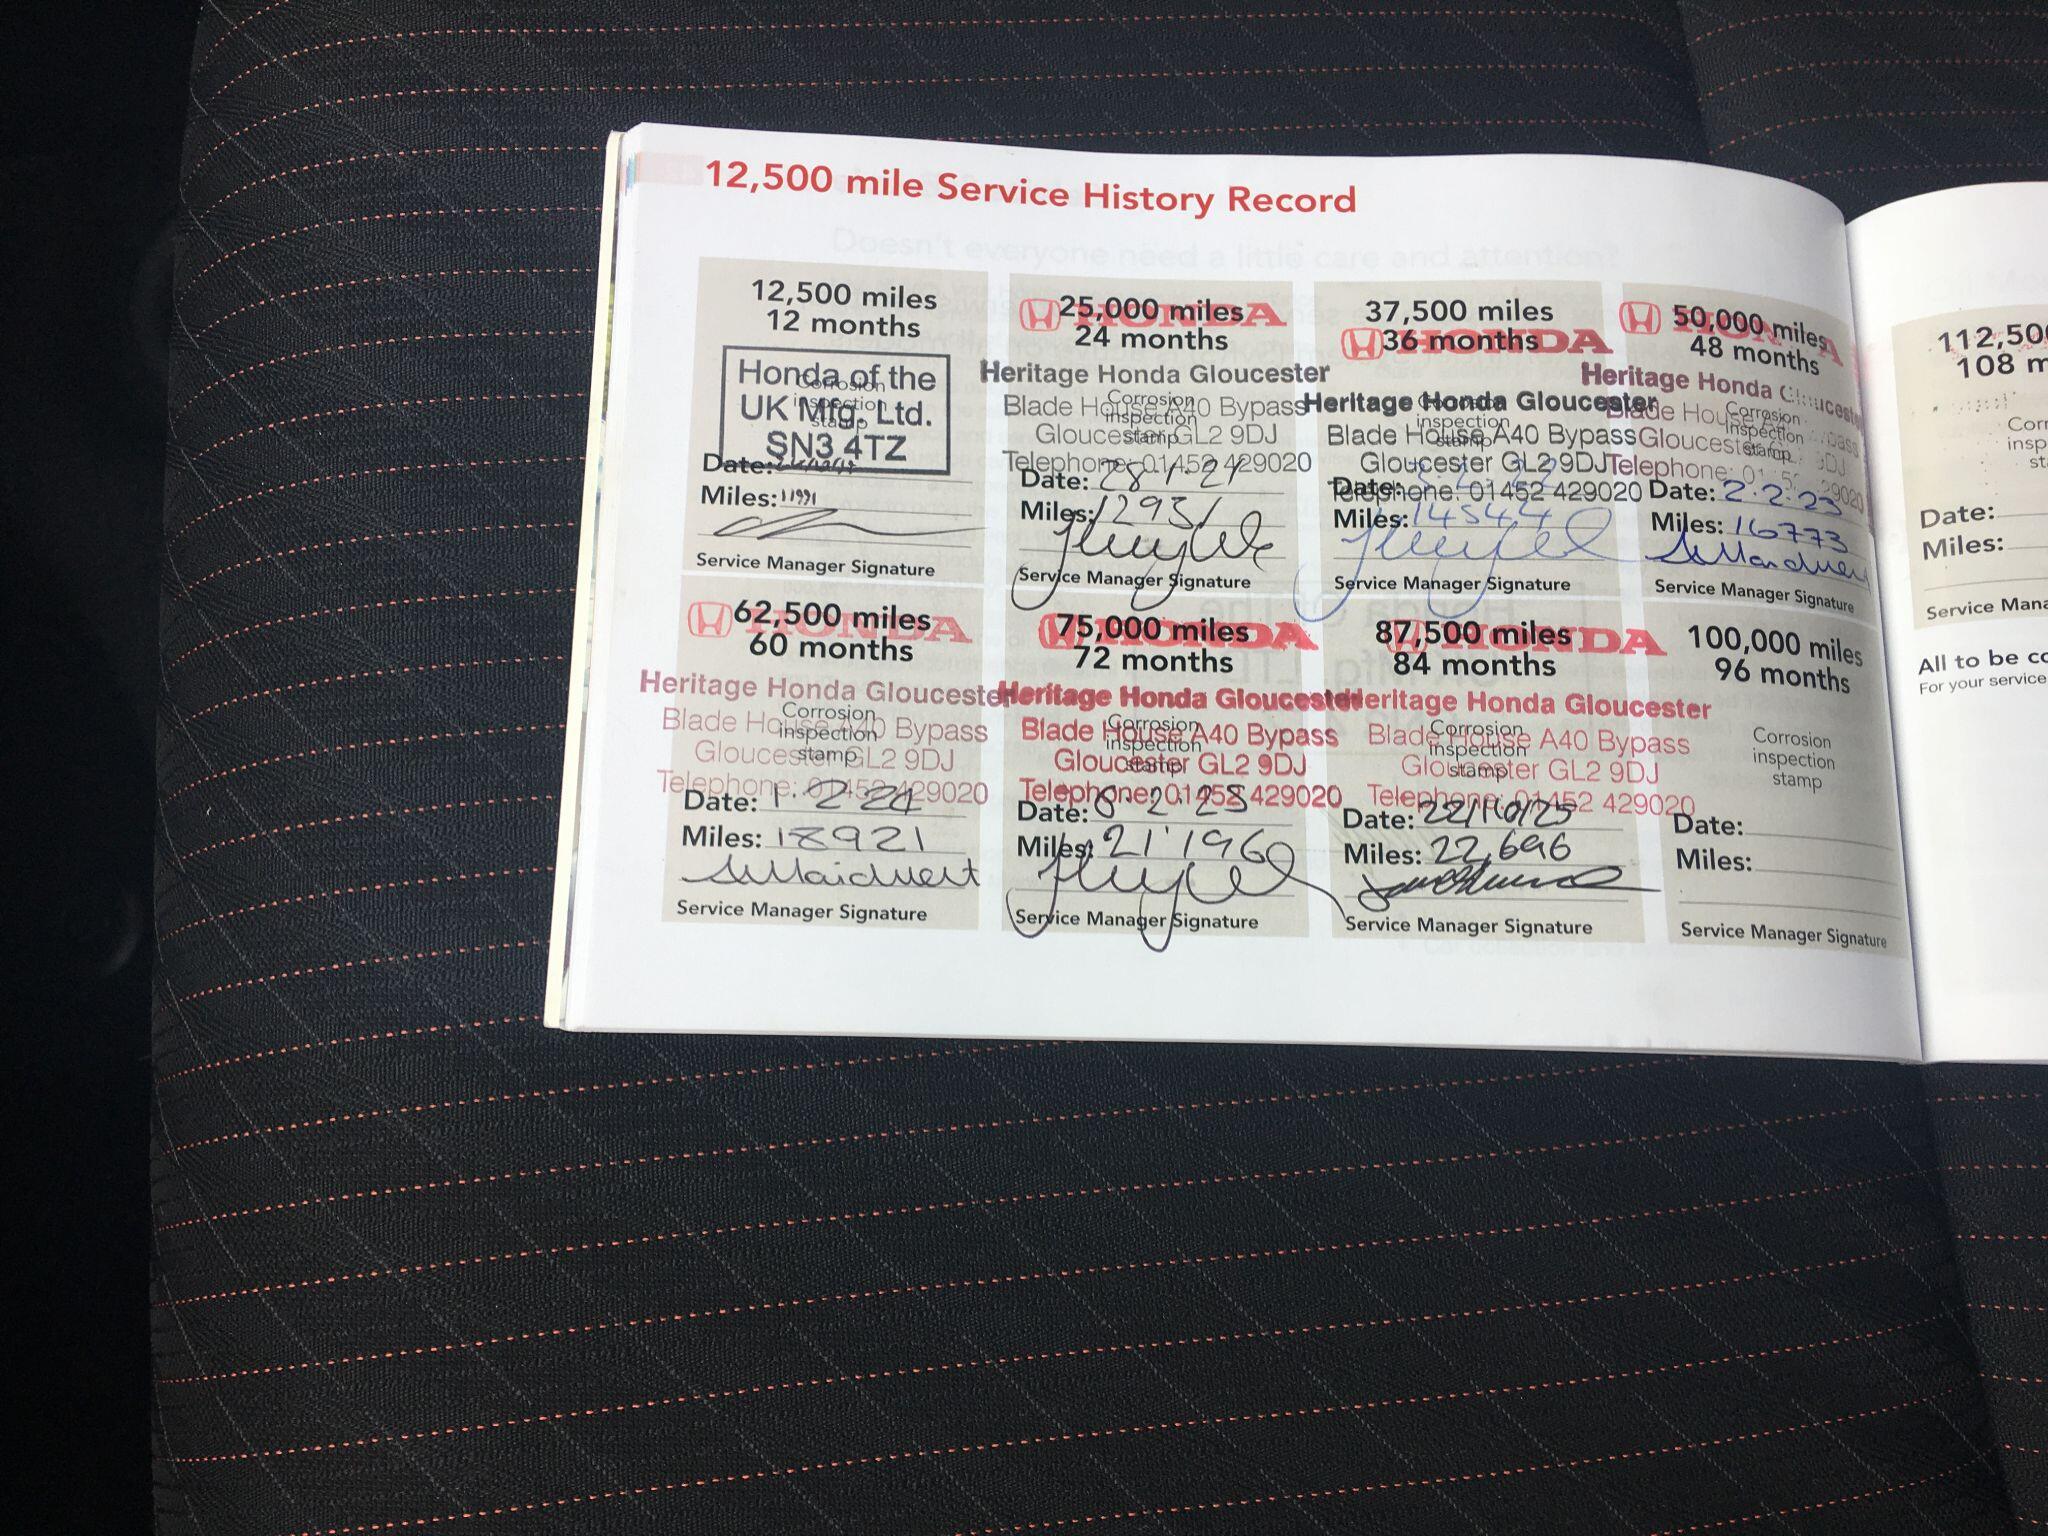 12,500 mile Service History Record
12,500 miles
12 months
Honda of the
UK Mfg. Ltd.
SN3 4TZ
Corrosion
inspection
stamp
Date:
Miles: 11991
Service Manager Signature
HONDA
25,000 miles
24 months
Heritage Honda Gloucester
Blade House A40 Bypass
Gloucester GL2 9DJ
Telephone: 01452 429020
Corrosion
inspection
stamp
Date: 28.1.21
Miles: 12931
Service Manager Signature
37,500 miles
HONDA
36 months
Heritage Honda Gloucester
Blade House A40 Bypass
Gloucester GL2 9DJ
Telephone: 01452 429020
Corrosion
inspection
stamp
Date:
Miles: 14544
Service Manager Signature
HONDA
50,000 miles
48 months
Heritage Honda Gloucester
Blade House A40 Bypass
Gloucester GL2 9DJ
Telephone: 01452 429020
Corrosion
inspection
stamp
Date: 2.2.23
Miles: 16773
Service Manager Signature
HONDA
62,500 miles
60 months
Heritage Honda Gloucester
Blade House A40 Bypass
Gloucester GL2 9DJ
Telephone: 01452 429020
Corrosion
inspection
stamp
Date: 1.2.24
Miles: 18921
Service Manager Signature
HONDA
75,000 miles
72 months
Heritage Honda Gloucester
Blade House A40 Bypass
Gloucester GL2 9DJ
Telephone: 01452 429020
Corrosion
inspection
stamp
Date: 6.2.25
Miles: 21'196
Service Manager Signature
HONDA
87,500 miles
84 months
Heritage Honda Gloucester
Blade House A40 Bypass
Gloucester GL2 9DJ
Telephone: 01452 429020
Corrosion
inspection
stamp
Date: 22/10/25
Miles: 22,696
Service Manager Signature
100,000 miles
96 months
Corrosion
inspection
stamp
Date:
Miles:
Service Manager Signature
112,50
108 m
Corr
insp
st
Date:
Miles:
Service Mana
All to be co
For your service